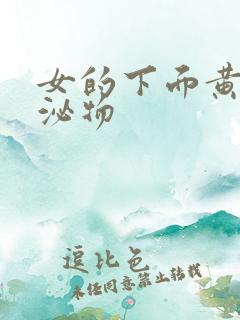 女的下面黄
泌物
逗比色
未经同意禁止转载